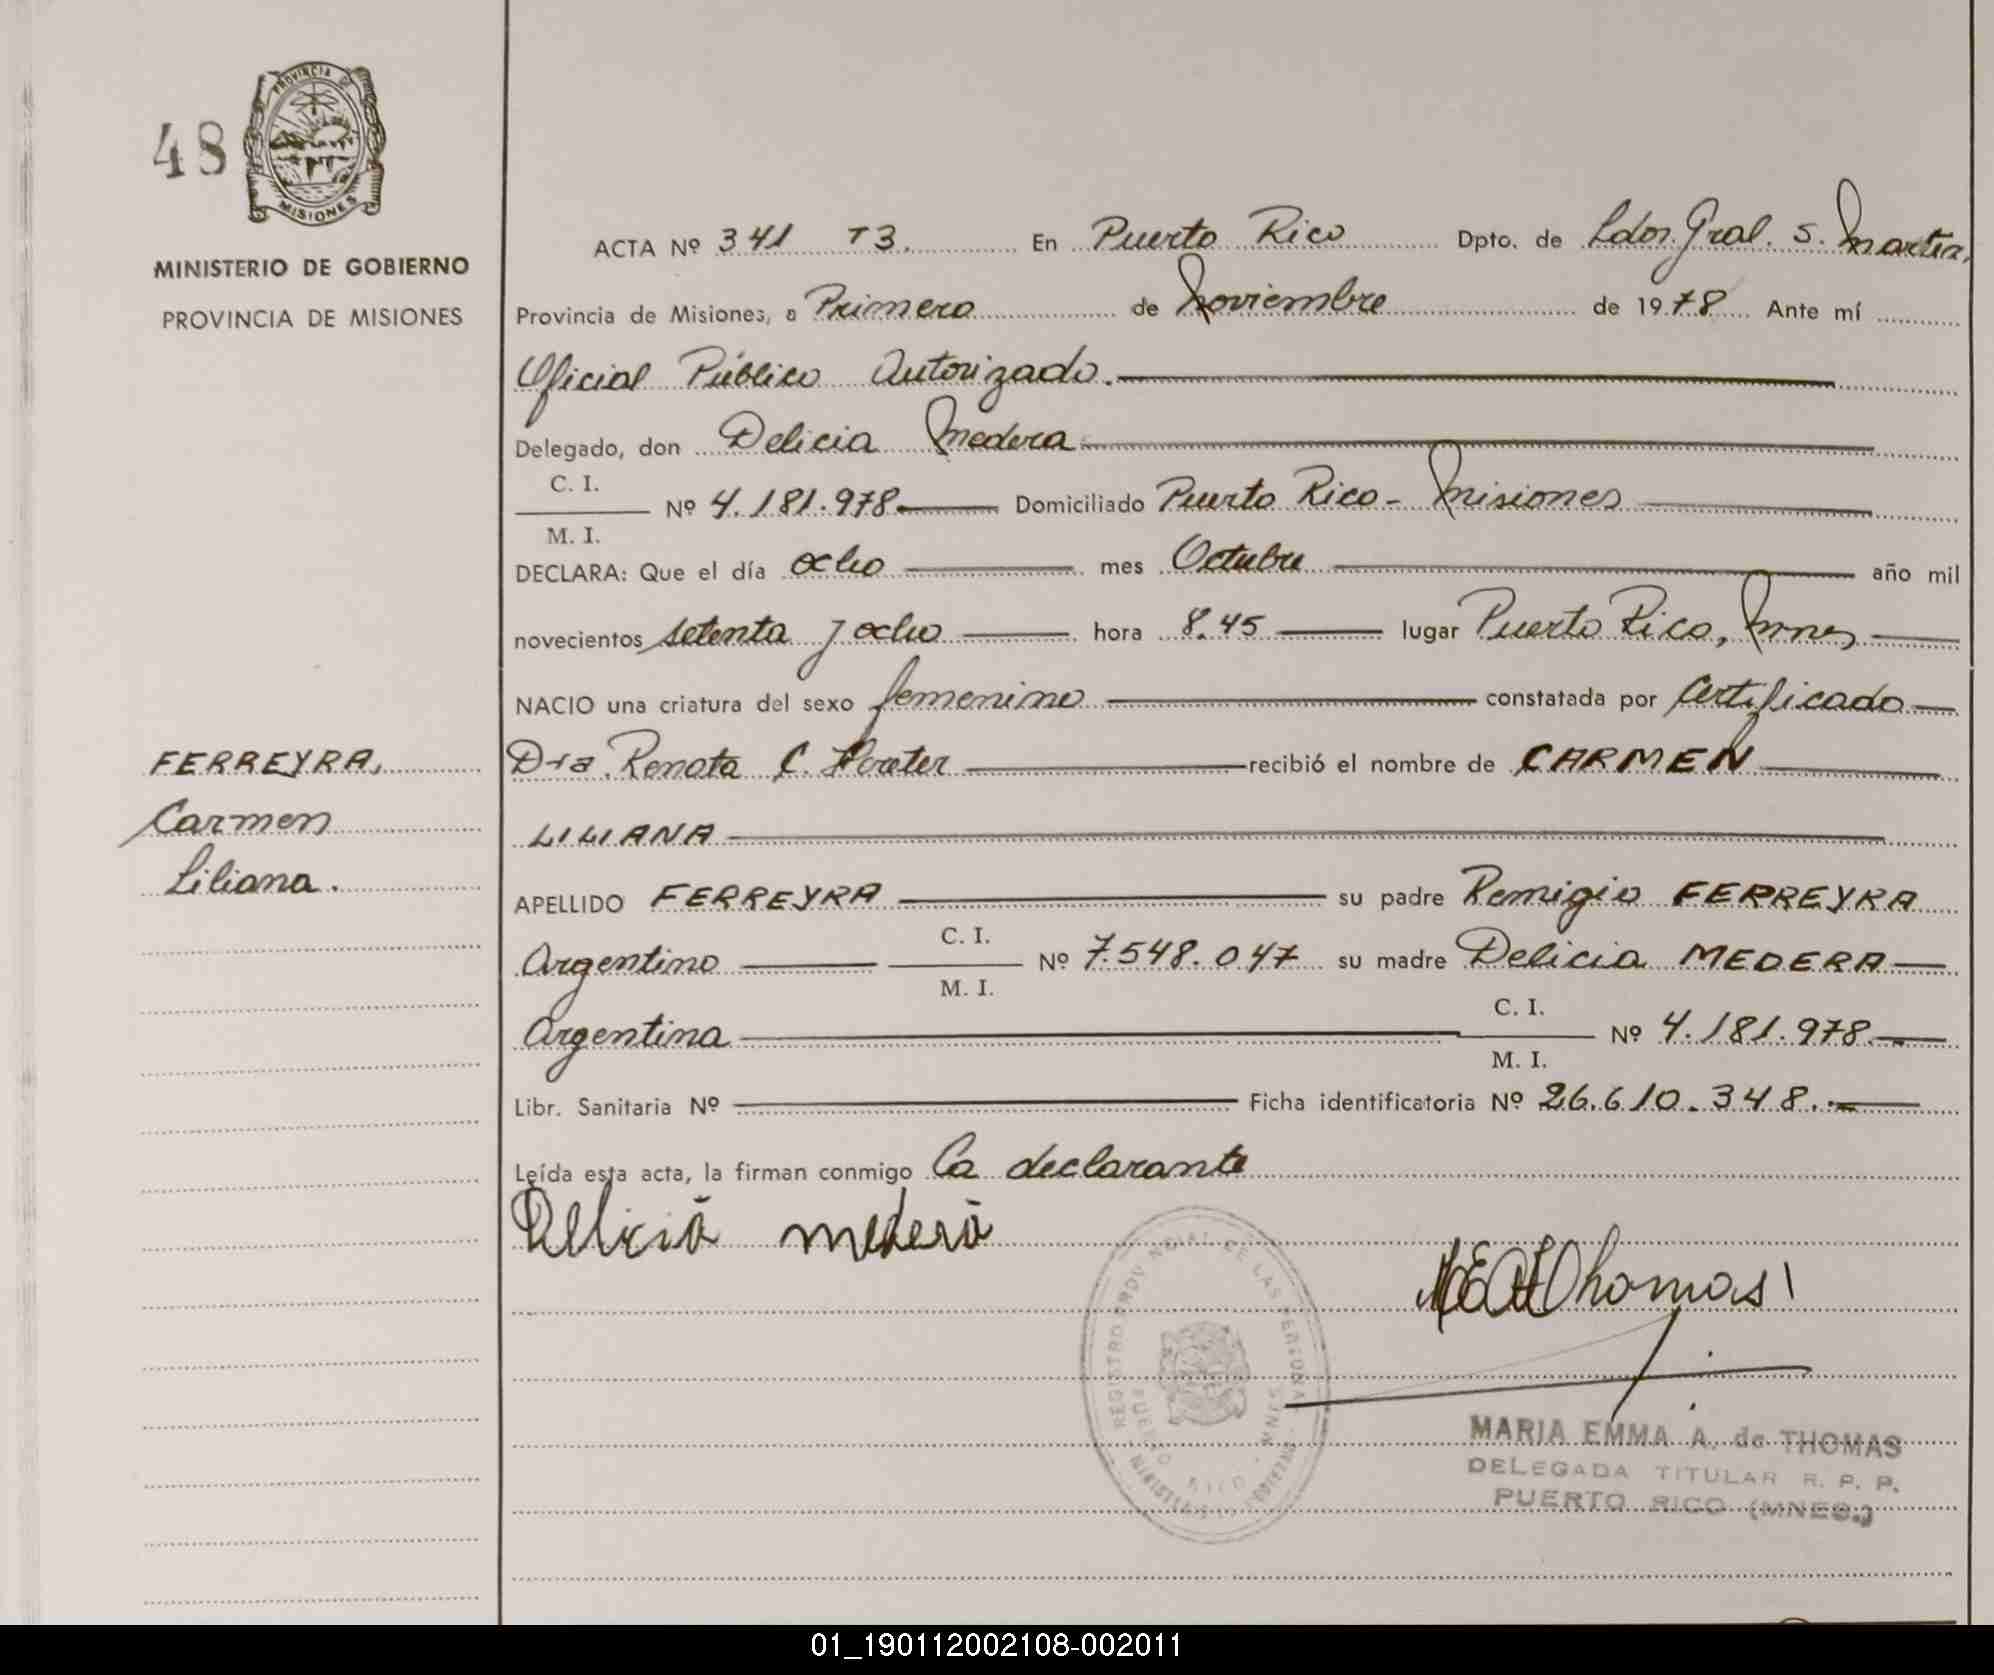 48
PROVINCIA DE
MISIONES
MINISTERIO DE GOBIERNO
PROVINCIA DE MISIONES
FERREYRA,
Carmen
Liliana.
ACTA Nº 341 T3. En Puerto Rico Dpto. de Ldor. Gral. S. Martin,
Provincia de Misiones, a Primero de Noviembre de 1978 Ante mí
Oficial Público Autorizado.
Delegado, don Delicia Medera
C. I.
Nº 4.181.978 Domiciliado Puerto Rico - Misiones
M. I.
DECLARA: Que el día ocho mes Octubre año mil
novecientos setenta y ocho hora 8.45 lugar Puerto Rico, Mnes
NACIO una criatura del sexo femenino constatada por Certificado
Dra. Renata C. recibió el nombre de CARMEN
LILIANA
APELLIDO FERREYRA su padre Remigio FERREYRA
C. I.
Argentino Nº 7.548.047 su madre Delicia MEDERA
M. I.
C. I.
Argentina Nº 4.181.978.
M. I.
Libr. Sanitaria Nº Ficha identificatoria Nº 26.610.348.
Leída esta acta, la firman conmigo La declarante
Delicia medera
Thomas
REGISTRO PROVINCIAL DE LAS PERSONAS
PUERTO RICO - MNES.
MARIA EMMA A. de THOMAS
DELEGADA TITULAR R. P. P.
PUERTO RICO (MNES.)
01_190112002108-002011